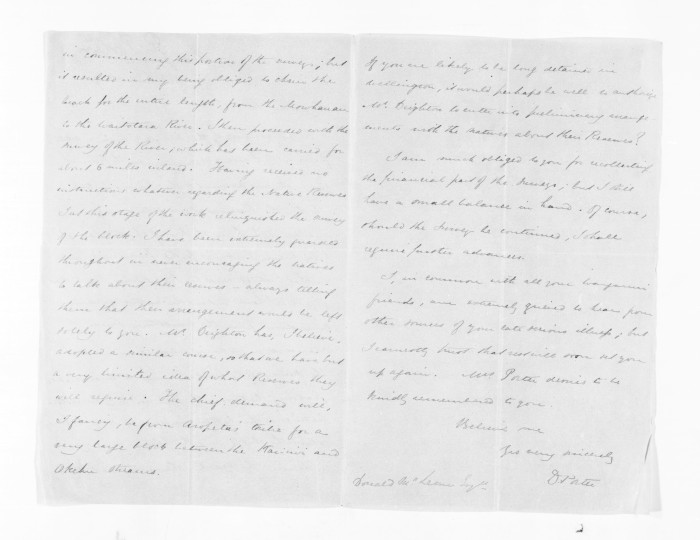 in commencing this portion of the survey; but
it resulted in my being obliged to chain the
track for the entire length, from the
to the Waitotara River. I then proceeded with the
survey of the River, which has been carried for
about 6 miles inland. Having received no
instructions whatever regarding the Native Reserves
I at this stage of the work relinquished the survey
of the block. I have been extremely guarded
throughout in never encouraging the natives
to talk about their reserves – always telling
them that their arrangement would be left
solely to you. Mr Deighton has, I believe,
adopted a similar course, so that we have but
a very limited idea of what Reserves they
will require. The chief demand will,
I fancy, be from tribe for a
very large block between the and
streams.
If you are likely to be long detained in
Wellington, it would perhaps be well to authorize
Mr Deighton to enter into preliminary arrange
ments with the natives about their Reserves?
I am much obliged to you for recollecting
the financial part of the Survey; but I still
have a small balance in hand. Of course,
should the survey be continued, I shall
require further advances.
I, in common with all your Wanganui
friends, am extremely grieved to hear from
other sources of your late serious illness; but
I earnestly trust that rest will soon set you
up again. Mrs Porter desires to be
kindly remembered to you.
Believe me
Yrs very sincerely
D Porter
Donald McLean Esqre